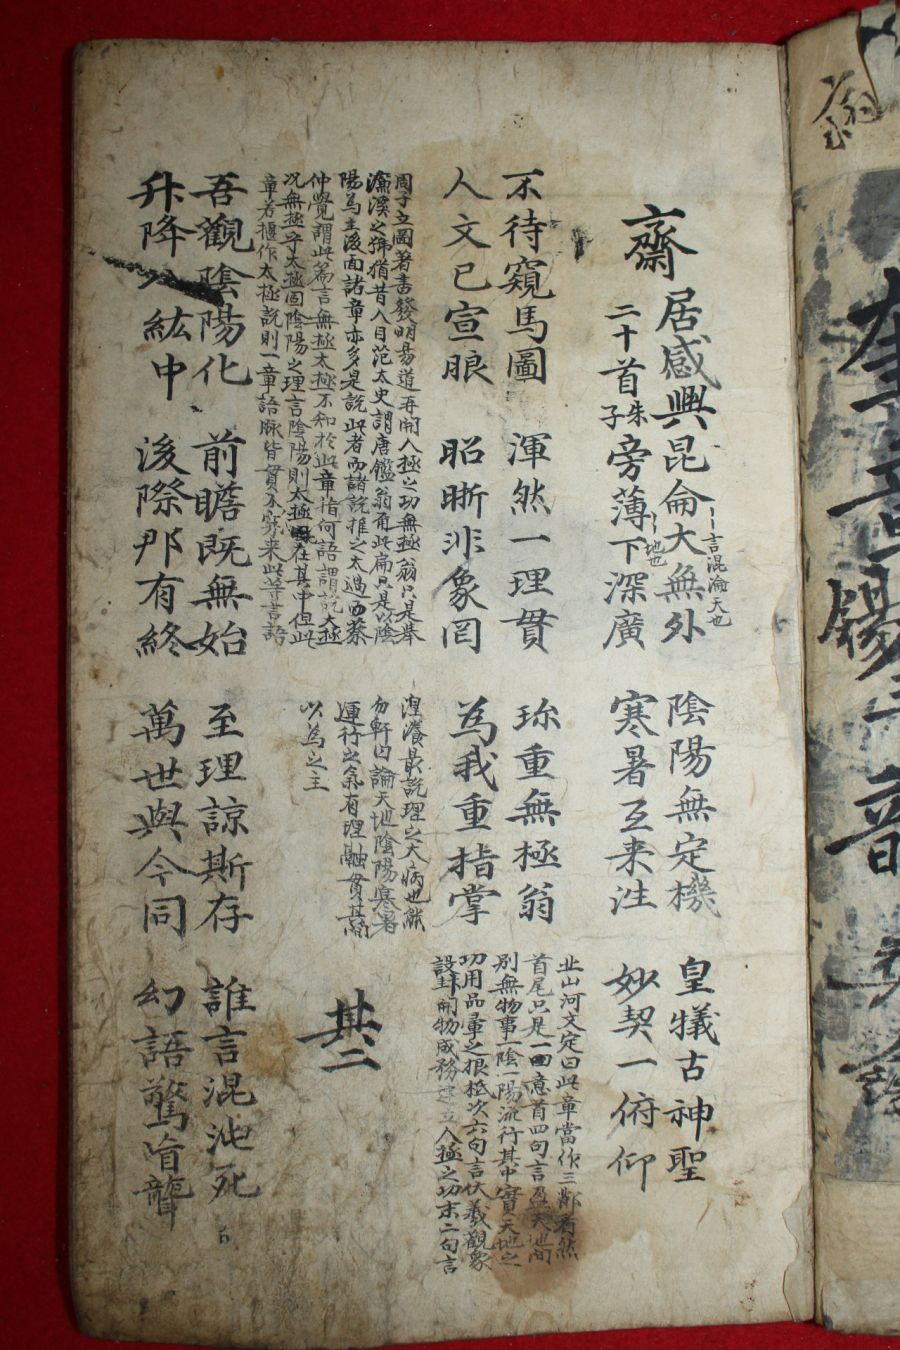 齋居感興
二十首 朱子
昆侖大無外
言混淪天也
旁薄下深廣
地也
陰陽無定機
寒暑互来往
皇犧古神聖
妙契一俯仰
不待窺馬圖
人文已宣朗
渾然一理貫
昭晣非象罔
珍重無極翁
為我重指掌
北山何文定曰此章當作三節看然
首尾只是一意首四句言盈天地間
別無物事一陰一陽流行其中實天地之
功用品彙之根柢次六句言伏羲觀象
設卦開物成務建立人極之功末二句言
周子立圖著書發明易道再開人極之功無極翁只是舉
濂溪之號猶昔人目范太史謂唐鑑翁爾此扁只是以陰
陽為主後面諸章亦多是說此者而諸說推之太過而蔡
仲覺謂此篇言無極太極不知於此章指何語謂說太極
况無極乎太極固陰陽之理言陰陽則太極在其中但此
章若摳作太極說則一章語脉皆貫不究来此等言語
涅瀁最說理之大病也熊
勿軒曰論天地陰陽寒暑
運行之氣有理融貫其間
以為之主
其二
吾觀陰陽化
升降八紘中
前瞻既無始
後際那有終
至理諒斯存
萬世與今同
誰言混沌死
幻語驚盲聾